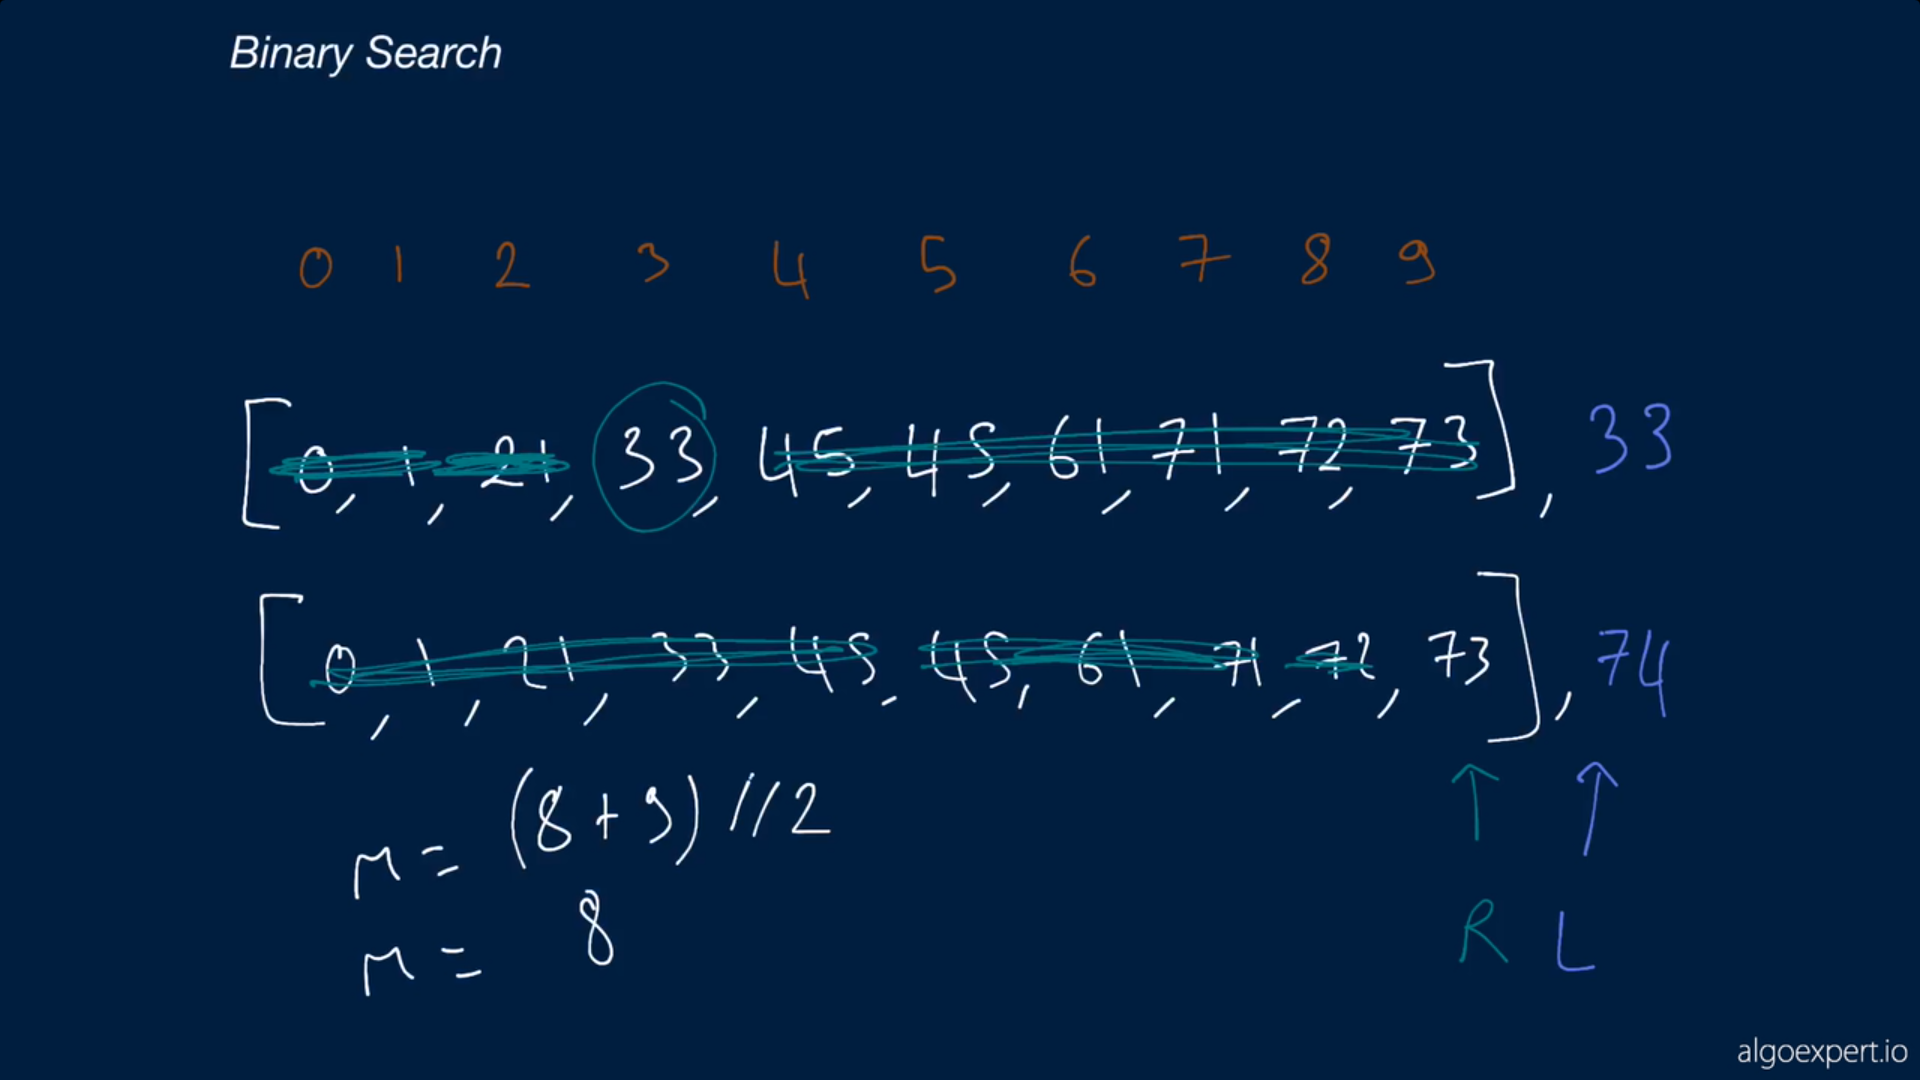 Binary Search
0 1 2 3 4 5 6 7 8 9
[0, 1, 21, 33, 45, 45, 61, 71, 72, 73], 33
[0, 1, 21, 33, 45, 45, 61, 71, 72, 73], 74
M = (8+9)//2
M = 8
R L
algoexpert.io